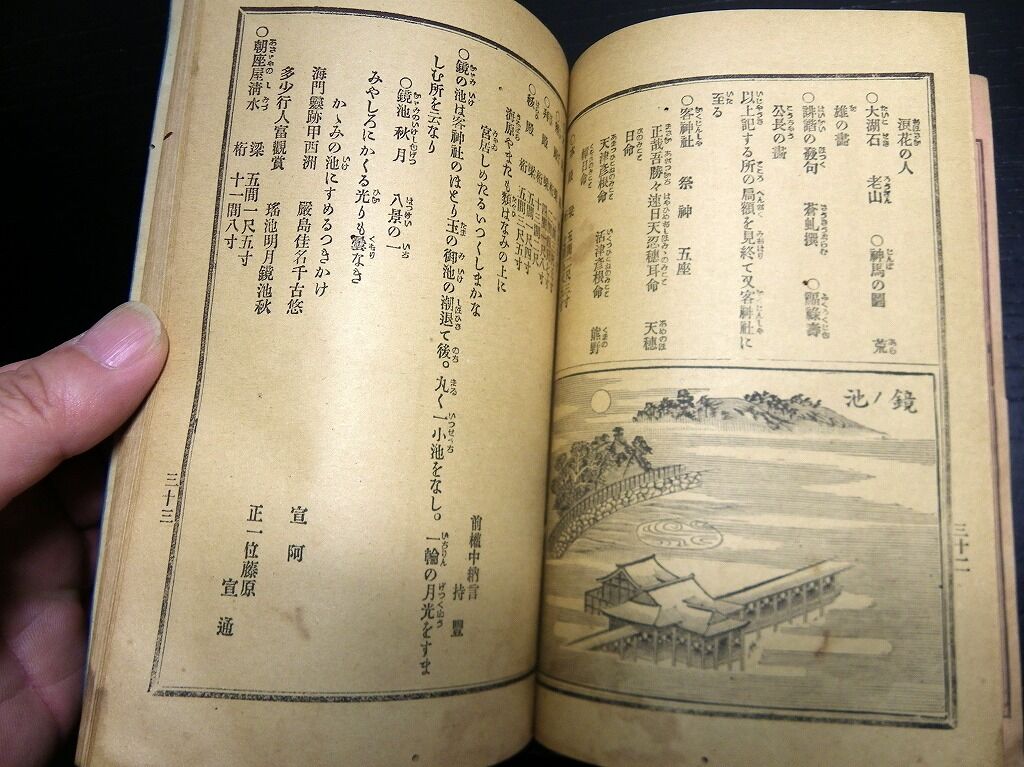 浪花の人
○大湖石　老山　○神馬の圖　荒
雄の畵
○誹諧の發句　蒼虬撰　○福祿壽
公長の畵
以上記する所の扁額を見終て又客神社に
至る
○客神社　祭神　五座
正哉吾勝々速日天忍穂耳命　天穂
日命
天津彦根命　活津彦根命　熊野
鏡ノ池
三十二
海原やまたも類はなみの上に
宮居しめたるいつくしまかな
前權中納言　持豐
○鏡の池は客神社のほとり玉の御池の潮退て後。丸く一小池をなし。一輪の月光をすま
しむ所を云なり
○鏡池秋月　八景の一
みやしろにかくる光りも曇なき
かゝみの池にすめるつきかけ
宣阿
海門靈跡甲西洲　嚴島佳名千古悠
多少行人富觀賞　瑤池明月鏡池秋
正一位藤原　宣通
○朝座屋清水　梁　五間一尺五寸
桁　十一間八寸
三十三